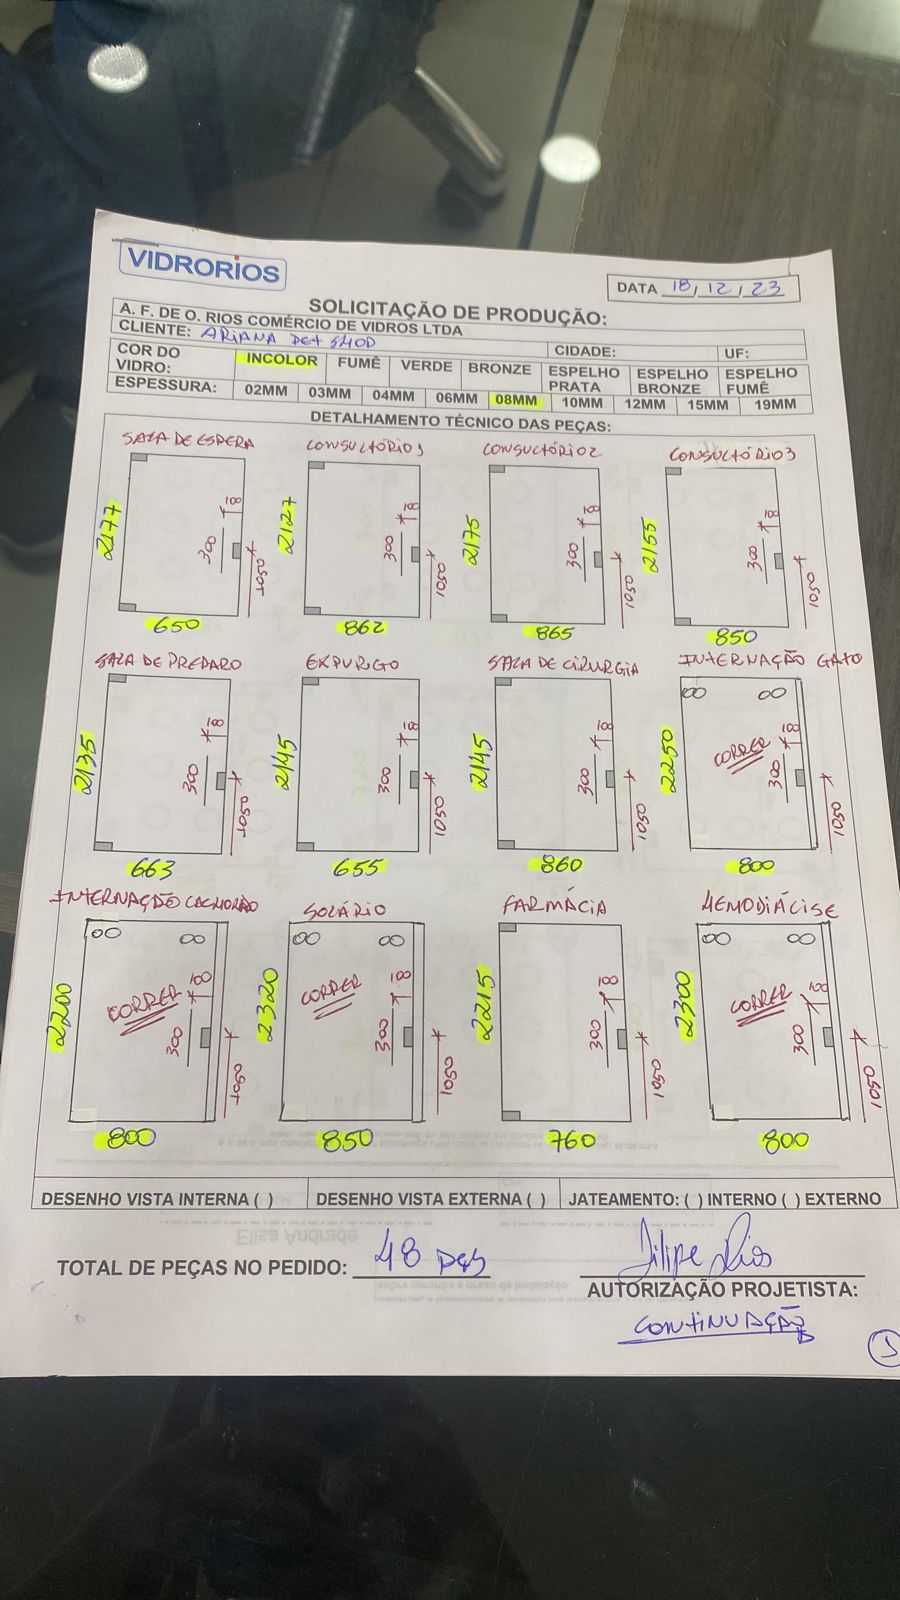 VIDRORIOS
DATA 18/12/23
SOLICITAÇÃO DE PRODUÇÃO:
A. F. DE O. RIOS COMÉRCIO DE VIDROS LTDA
CLIENTE: ARIANA PET SHOP CIDADE: UF:
COR DO VIDRO: INCOLOR FUMÊ VERDE BRONZE ESPELHO PRATA ESPELHO BRONZE ESPELHO FUMÊ
ESPESSURA: 02MM 03MM 04MM 06MM 08MM 10MM 12MM 15MM 19MM
DETALHAMENTO TÉCNICO DAS PEÇAS:
SALA DE ESPERA CONSULTÓRIO 1 CONSULTÓRIO 2 CONSULTÓRIO 3
2177 300 100 1050 2127 300 100 1050 2175 300 100 1050 2155 300 100 1050
650 862 865 850
SALA DE PREPARO EXPURGO SALA DE CIRURGIA INTERNAÇÃO GATO
2135 300 100 1050 2145 300 100 1050 2145 300 100 1050 2250 CORRER 300 100 1050
663 655 860 800
INTERNAÇÃO CACHORRO SOLÁRIO FARMÁCIA HEMODIÁLISE
2200 CORRER 300 100 1050 2320 CORRER 300 100 1050 2215 300 100 1050 2300 CORRER 300 100 1050
800 850 760 800
DESENHO VISTA INTERNA ( ) DESENHO VISTA EXTERNA ( ) JATEAMENTO: ( ) INTERNO ( ) EXTERNO
TOTAL DE PEÇAS NO PEDIDO: 48 PÇS Filipe Rios
AUTORIZAÇÃO PROJETISTA:
CONTINUAÇÃO